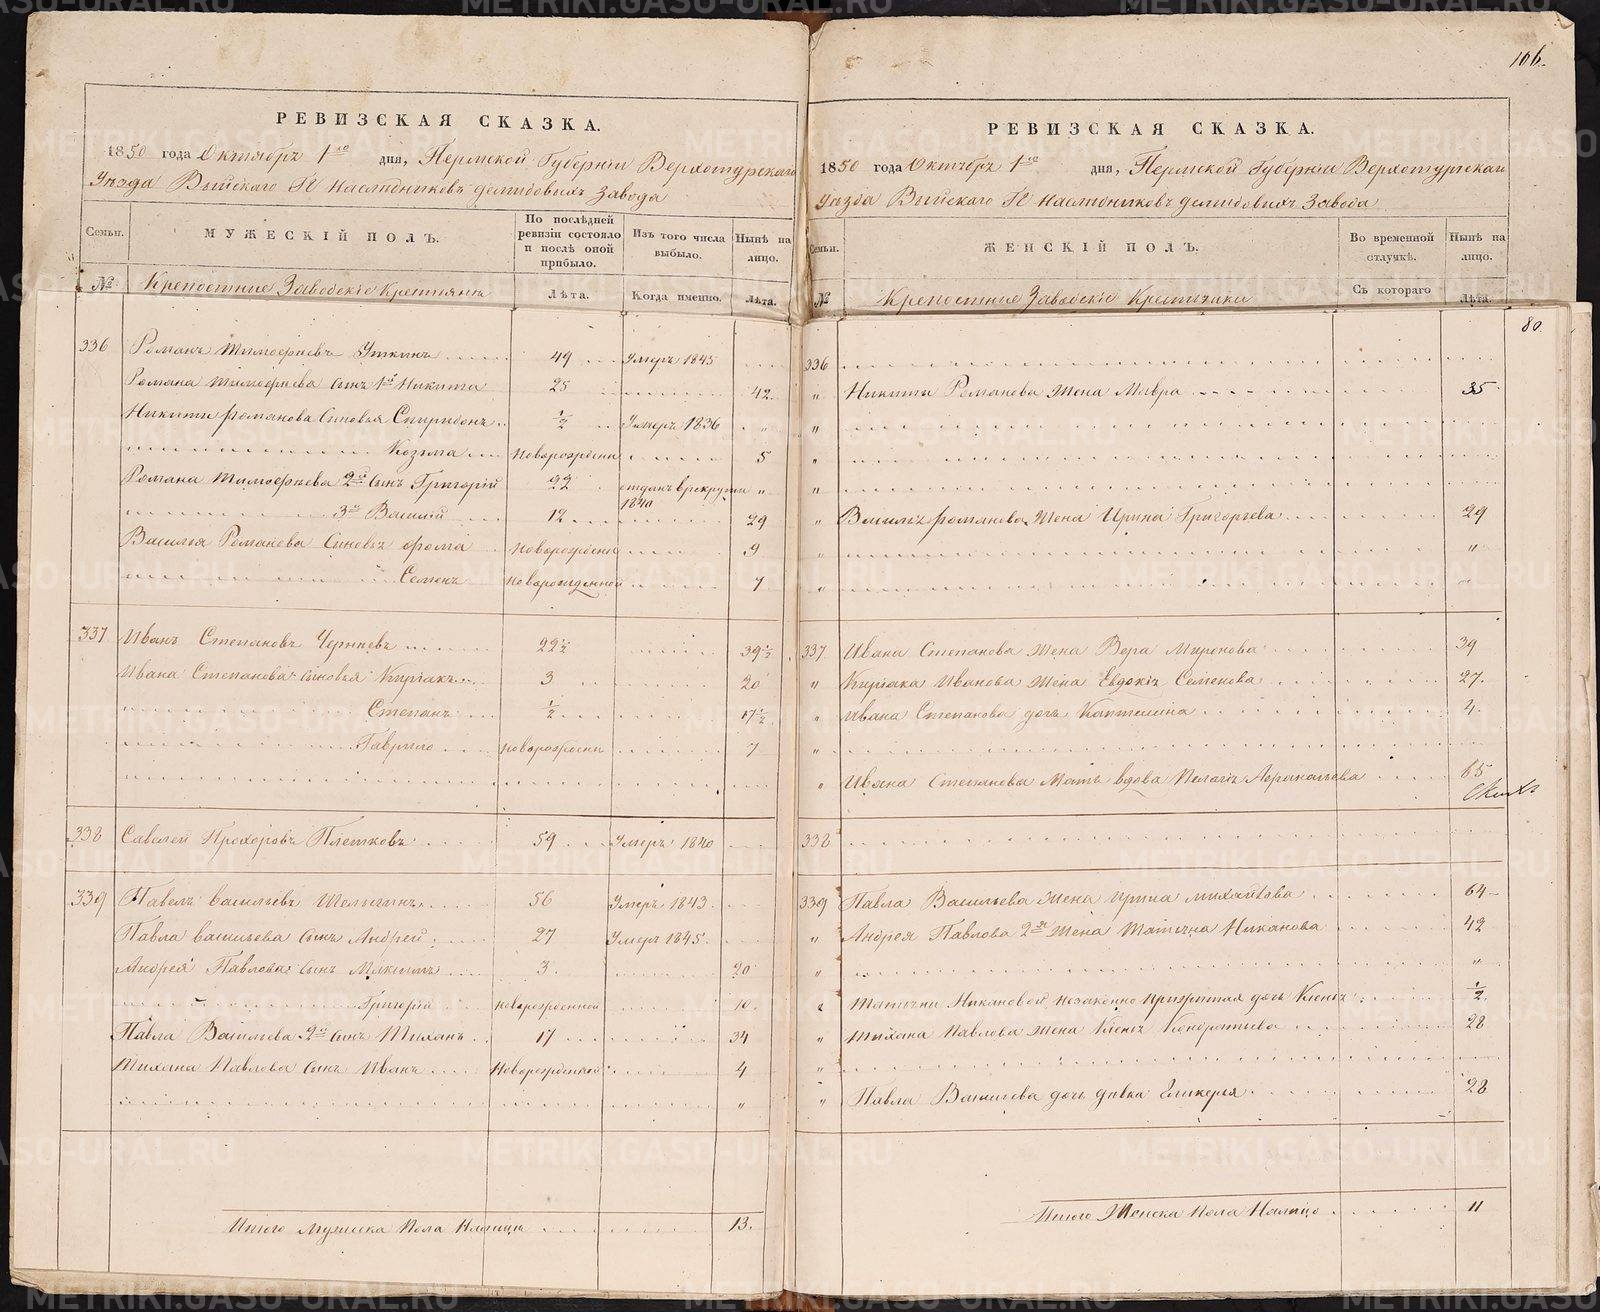 106.
РЕВИЗСКАЯ СКАЗКА.
1850 года Октября 1го дня, Пермской Губерніи Верхотурскаго
Уезда Выйскаго Гг Наследниковъ Демидовыхъ Завода
Семьи. МУЖЕСКІЙ ПОЛЪ. По послѣдней ревизіи состояло и послѣ оной прибыло. Изъ того числа выбыло. Нынѣ на лицо.
№ Крепостные Заводскіе Крестьяне Лѣта. Когда именно. Лѣта.
336 Романъ Тимофеевъ Уткинъ 49 Умеръ 1845
Романа Тимофеева сынъ 1й Никита 25 42.
Никиты Романова сыновья Спиридонъ 1/2 Умеръ 1836 "
Козьма новорожденн 5
Романа Тимофеева 2й сынъ Григорій 22 отданъ в рекруты 1840 "
3й Василій 12 29
Василья Романова сыновья Фома новорожденн 9
Семенъ новорожденной 7
337 Иванъ Степановъ 22 1/2 39 1/2
Ивана Степанова сыновья Киріакъ 3 20
Степанъ 1/2 17 1/2
Гаврило новорожденн 7
338 Савелей Прохоровъ Плетковъ 59 Умеръ 1840
339 Павелъ Васильевъ 56 Умеръ 1843
Павла Васильева сынъ Андрей 27 Умеръ 1845.
Андрея Павлова сынъ Максимъ 3. 20
Григорій новорожденной 10.
Павла Васильева 2й сынъ Тиханъ 17 34
Тихана Павлова сынъ Иванъ Новорожденной 4
"
Итого Мужеска Пола Налицо 13.
РЕВИЗСКАЯ СКАЗКА.
1850 года Октября 1го дня, Пермской Губерніи Верхотурскаго
Уезда Выйскаго Гг Наследниковъ Демидовыхъ Завода
Семьи. ЖЕНСКІЙ ПОЛЪ. Во временной отлучкѣ. Нынѣ на лицо.
№ Крепостные Заводскіе Крестьянки Съ котораго Лѣта.
80.
336
" Никиты Романова жена Мавра 35
"
"
"
" Василья Романова жена Ирина Григорьева 29
" "
" "
337 Ивана Степанова жена Вера Миронова 39
" Киріака Иванова жена Евдокія Семенова 27.
" Ивана Степанова дочь Каптелина 4.
"
" Ивана Степанова мать вдова Пелагія Афанасьева 65
338
339 Павла Васильева жена Ирина Михайлова 64
" Андрея Павлова 2я жена Татьяна Никанова 42
" "
" Татьяны Никановой незаконно прижитая дочь 1/2.
" Тихана Павлова жена Кондратьева 28
"
" Павла Васильева дочь девка Гликерья 28
Итого Женска Пола Налицо 11
METRIKI.GASO-URAL.RU